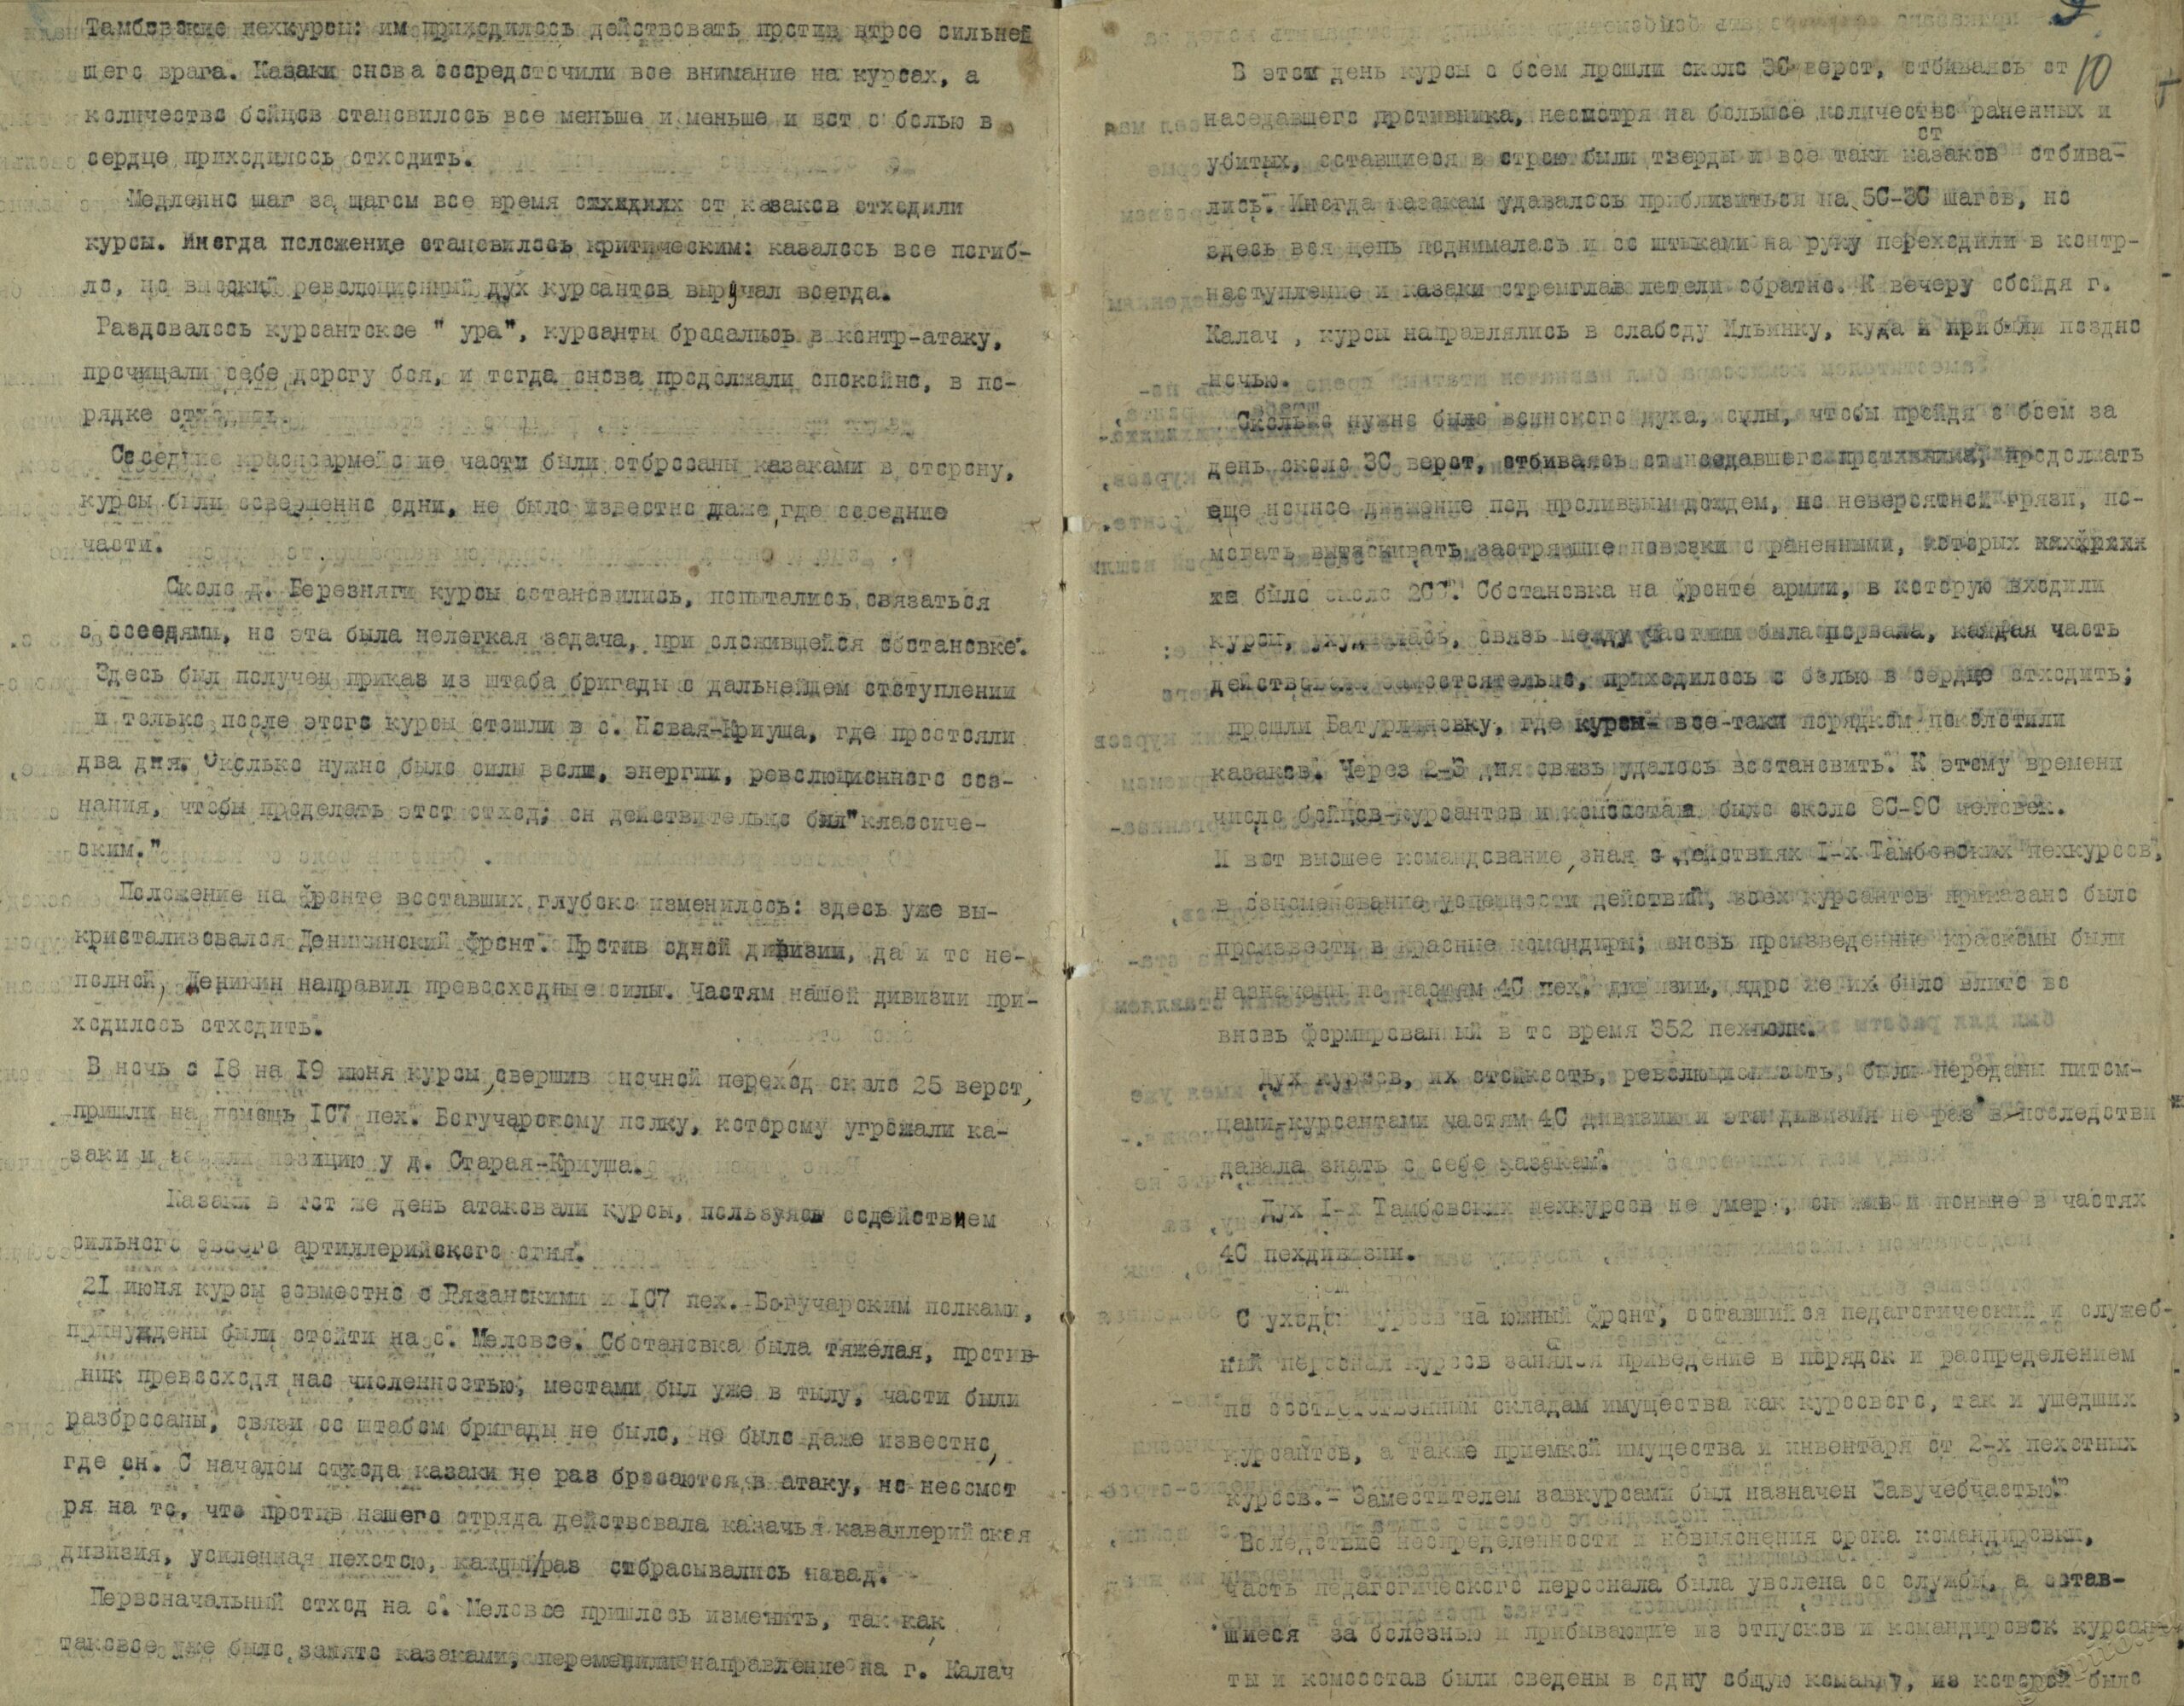 Тамбовские пехкурсы: им приходилось действовать против втрое сильней
шего врага. Казаки снова сосредоточили все внимание на курсах, а
количество бойцов становилось все меньше и меньше и вот с болью в
сердце приходилось отходить.
Медленно шаг за шагом все время от казаков отходили
курсы. Иногда положение становилось критическим: казалось все погиб-
ло, но высокий революционный дух курсантов выручал всегда.
Раздовалось курсантское " ура", курсанты бросались в контр-атаку,
прочищали себе дорогу боя, и тогда снова продолжали спокойно, в по-
рядке отходить.
Соседние красноармейские части были отбросаны казаками в сторону,
курсы были совершенно одни, не было известно даже, где соседние
части.
Около д. Березняги курсы остановились, попытались связаться
с соседями, но эта была нелегкая задача, при сложившейся обстановке.
Здесь был получен приказ из штаба бригады о дальнейшем отступлении
и только после этого курсы отошли в с. Новая-Криуша, где простояли
два дня. Сколько нужно было силы воли, энергии, революционного соз-
нания, чтобы проделать этот отход; он действительно был "классиче-
ским."
Положение на фронте восставших глубоко изменилось: здесь уже вы-
кристализовался Деникинский фронт. Против одной дивизии, да и то не-
полной, Деникин направил превосходные силы. Частям нашей дивизии при-
ходилось отходить.
В ночь с I8 на I9 июня курсы, свершив ночной переход около 25 верст,
пришли на помощь IС7 пех. Богучарскому полку, которому угрожали ка-
заки и заняли позицию у д. Старая-Криуша.
Казаки в тот же день атаковали курсы, пользуясь содействием
сильного своего артиллерийского огня.
2I июня курсы совместно с Рязанскими и IС7 пех. Богучарским полками,
принуждены были отойти на с. Меловое. Обстановка была тяжелая, против-
ник превосходя нас численностью, местами был уже в тылу, части были
разбросаны, связи со штабом бригады не было, не было даже известно,
где он. С началом отхода казаки не раз бросаются в атаку, но несмот
ря на то, что против нашего отряда действовала казачья каваллерийская
дивизия, усиленная пехотою, каждый/раз отбрасывались назад.
Первоначальный отход на с. Меловое пришлось изменить, так как
таковое уже было занято казаками, переменили направление на г. Калач
9
10
В этот день курсы с боем прошли около ЗС верст, отбиваясь от
наседавшего противника, несмотря на большое количество раненных и
от
убитых, оставшиеся в строю были тверды и все таки казаков отбива-
лись. Иногда казакам удавалось приблизиться на 5С-ЗС шагов, но
здесь вся цепь поднималась и со штыками на руку переходили в контр-
наступление и казаки стремглав летели обратно. К вечеру обойдя г.
Калач , курсы направлялись в слабоду Ильинку, куда и прибыли поздно
ночью.
Сколько нужно было воинского духа, силы, чтобы пройдя с боем за
день около ЗС верст, отбиваясь от наседавшего противника, продолжать
еще ночное движение под проливным дождем, по невероятной грязи, по-
могать вытаскивать застрявшие повозки с раненными, которых
было около 2СС. Обстановка на фронте армии, в которую входили
курсы, ухудшилась, связь между частями была порвана, каждая часть
действовала самостоятельно, приходилось с болью в сердце отходить;
прошли Батурлиновку, где курсы все-таки порядком поколотили
казаков. Через 2-3 дня связь удалось восстановить. К этому времени
число бойцов-курсантов и комсостава было около 8С-9С человек.
И вот высшее командование, зная о действиях I-х Тамбовских пехкурсов,
в ознаменование успешности действий, всех курсантов приказано было
произвести в красные командиры; вновь произведенные краскомы были
назначены по частям 4С пех. дивизии, ядро же их было влито во
вновь формированный в то время 352 пехполк.
Дух курсов, их стойкость, революционность, были переданы питом-
цами-курсантами частям 4С дивизии и эта дивизия не раз в последстви и
давала знать о себе казакам.
Дух I-х Тамбовских пехкурсов не умер , он жив и поныне в частях
4С пехдивизии.
С уходом курсов на южный фронт, оставшийся педагогический и служеб-
ный персонал курсов занялся приведение в порядок и распределением
по соответственным складам имущества как курсового, так и ушедших
курсантов, а также приемкой имущества и инвентаря от 2-х пехотных
курсов.- Заместителем завкурсами был назначен Завучебчастью.
Вследствие неопределенности и невыяснения срока командировки,
часть педагогического персонала была уволена со службы, а остав-
шиеся за болезнью и прибывающие из отпусков и командировок курсан-
ты и комсостав были сведены в одну общую команду, из которой было